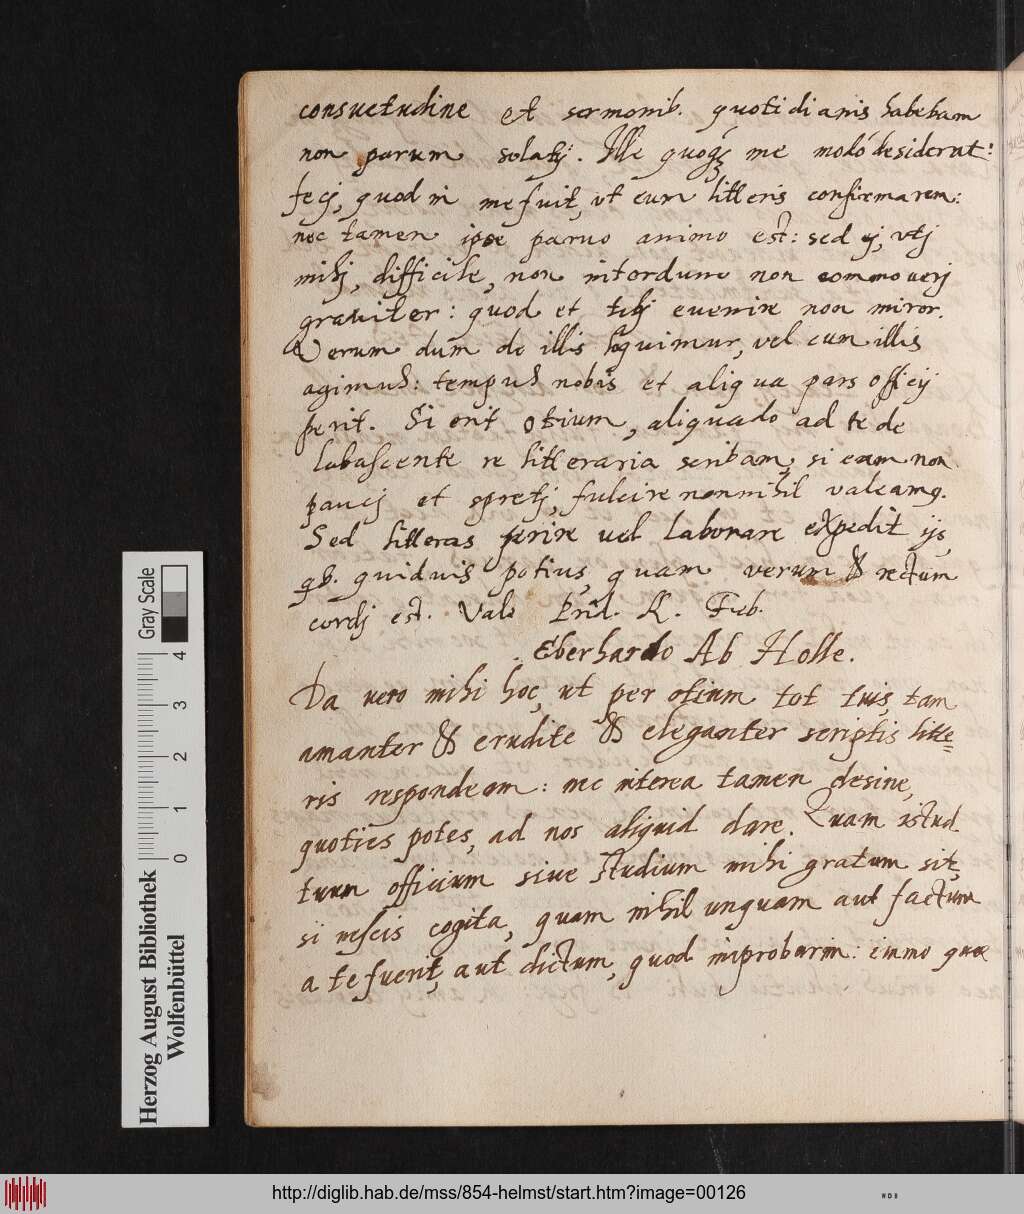 consuetudine et sermonib. quotidianis habebam
non parum solatij. Ille quoqꝫ me modò desiderat:
fecj, quod in me fuit, vt eum litteris confirmarem:
nec tamen ipse paruo animo est: sed ej, vtj
mihj, difficile, non interdum non commouerj
grauiter: quod et tibj euenire non miror.
Verum dum de illis loquimur, vel cum illis
agimus: tempus nobis et aliqua pars officij
perit. Si erit otium, aliquando ad te de
labascente re litteraria scribam, si eam non
paucj et spretj, fulcire nonnihil valeamq.
Sed litteras perire vel laborare expedit ijs,
qb. quiduis potius, quam verum & rectum
cordj est. Vale Prid. K. Feb.
Eberhardo Ab Holle.
Da vero mihi hoc, ut per otium tot tuis, tam
amanter & erudite & eleganter scriptis litte=
ris respondeam: nec interea tamen desine,
quoties potes, ad nos aliquid dare. Quam istud
tuum officium siue studium mihi gratum sit,
si nescis cogita, quam nihil unquam aut factum
a te fuerit, aut dictum, quod improbarim: immo quae
Herzog August Bibliothek
Wolfenbüttel
0 1 2 3 4
Gray Scale
http://diglib.hab.de/mss/854-helmst/start.htm?image=00126